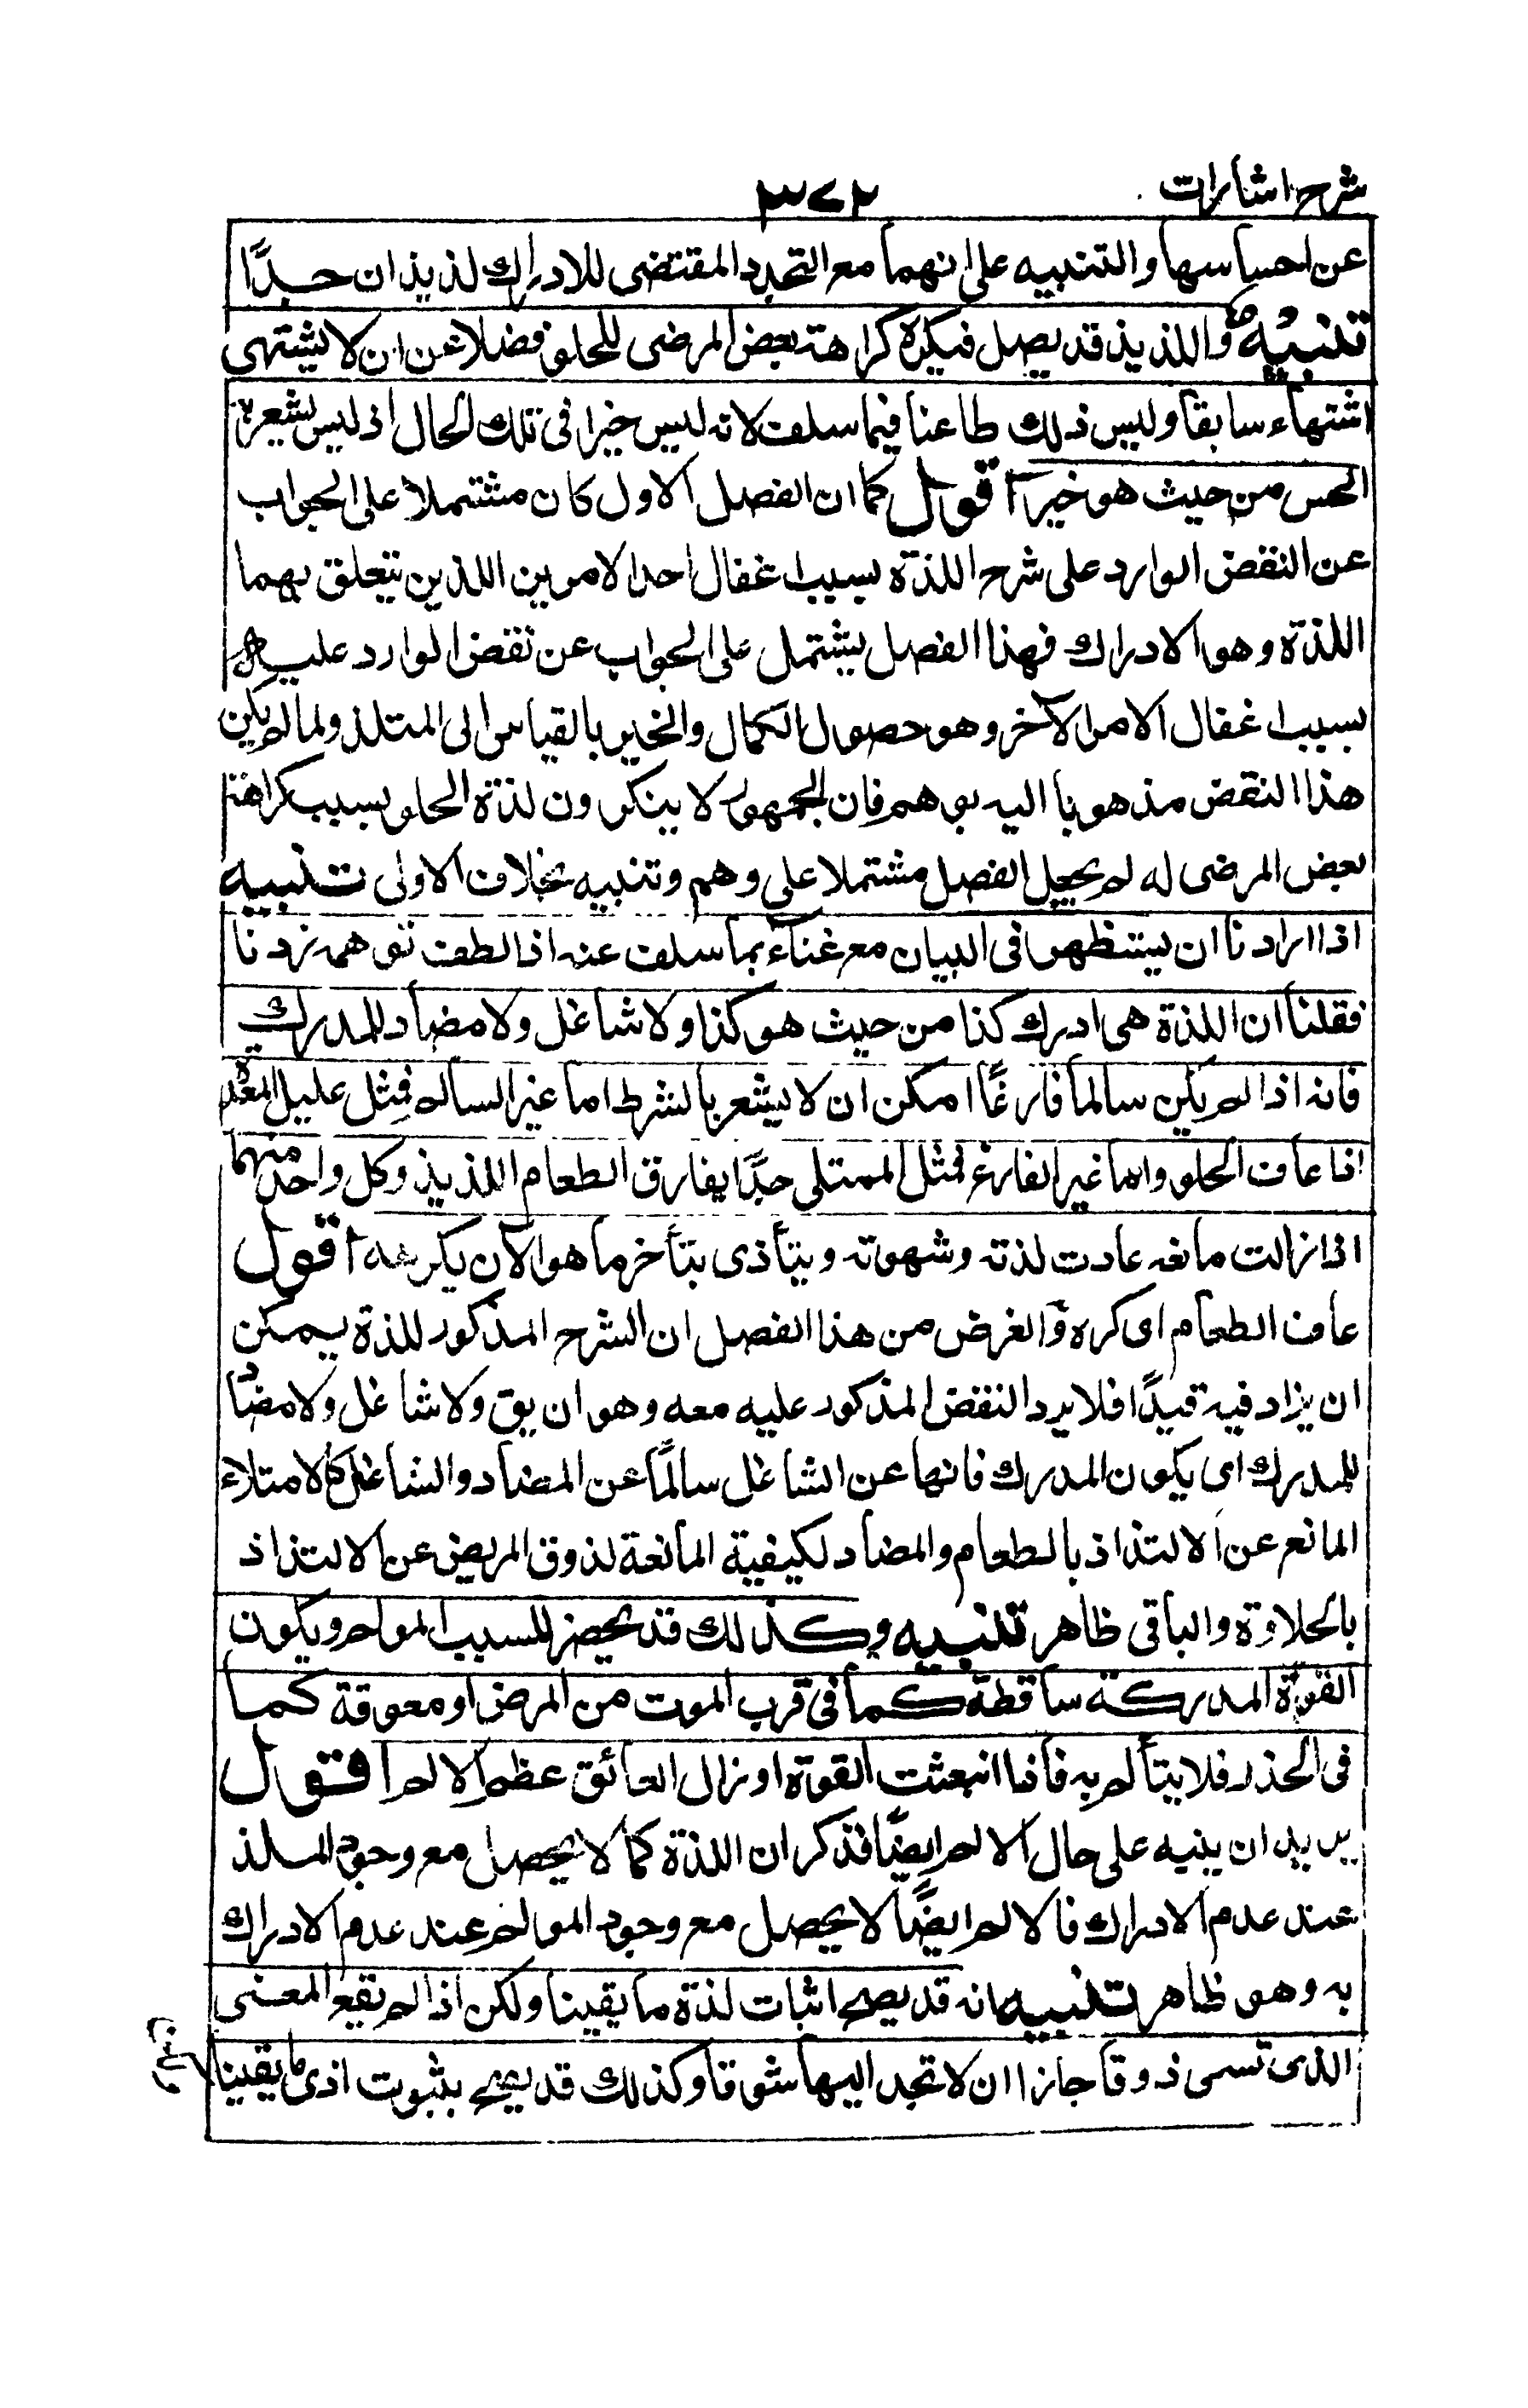 شرح اشارات ٣٧٢
عن احساسها والتنبيه على انهما مع التجدد المقتضى للادراك لذيذان جدًّا
تنبيه واللذيذ قد يصل فيكره كراهة بعض المرضى للحلو فضلا عن ان لا يشتهى
اشتهاء سابقا وليس ذلك طاعنا فيما سلف لانه ليس خيرا فى تلك الحال اذ ليس يشعر به
الحس من حيث هو خير اقول كما ان الفصل الاول كان مشتملا على الجواب
عن النقض الوارد على شرح اللذة بسبب اغفال احد الامرين اللذين يتعلق بهما
اللذة وهو الادراك فهذا الفصل يشتمل على الجواب عن نقض الوارد عليه
بسبب اغفال الامر الآخر وهو حصول الكمال والخير بالقياس الى المتلذ ولما لم يكن
هذا النقض مذهوبا اليه بوهم فان الجمهور لا ينكرون لذة الحلو بسبب كراهة
بعض المرضى له لم يجعل الفصل مشتملا على وهم وتنبيه بخلاف الاولى تنبيه
اذا اردنا ان يستظهر فى البيان مع غناء بما سلف عنه اذا لطف توهمه زدنا
فقلنا ان اللذة هى ادرك كذا من حيث هو كذا ولا شاغل ولا مضاد للمدرك
فانه اذا لم يكن سالما فارغًا امكن ان لا يشعر بالشرط اما غير السالم فمثل عليل المعدة
اذا عاف الحلو واما غير الفارغ فمثل الممتلى جدًّا يفارق الطعام اللذيذ وكل واحد منهما
اذا زالت مانعه عادت لذته وشهوته ويتأذى بتأخر ما هو الآن يكرهه اقول
عاف الطعام اى كره والغرض من هذا الفصل ان الشرح المذكور للذة يمكن
ان يزاد فيه قيدًا فلا يرد النقض المذكور عليه معه وهو ان يق ولا شاغل ولا مضاد
للمدرك اى يكون المدرك فانها عن الشاغل سالمًا عن المضاد والشاغل كالامتلاء
المانع عن الالتذاذ بالطعام والمضاد لكيفية المانعة لذوق المريض عن الالتذاذ
بالحلاوة والباقى ظاهر تنبيه وكذلك قد يحضر للسبب المولم ويكون
القوة المدركة ساقطة كما فى قرب الموت من المرض او معوقة كما
فى الخدر فلا يتألم به فاذا انبعثت القوة او زال العائق عظم الالم اقول
يريد ان ينبه على حال الالم ايضًا فذكر ان اللذة كما لا يحصل مع وجود الملذ
عند عدم الادراك فالالم ايضًا لا يحصل مع وجود المولم عند عدم الادراك
به وهو ظاهر تنبيه انه قد يصح اثبات لذة ما يقينا ولكن اذا لم يقع المعنى
الذى تسمى ذوقا جاز ان لا تجد اليها شوقا وكذلك قد يصح بثبوت اذى ما يقينا